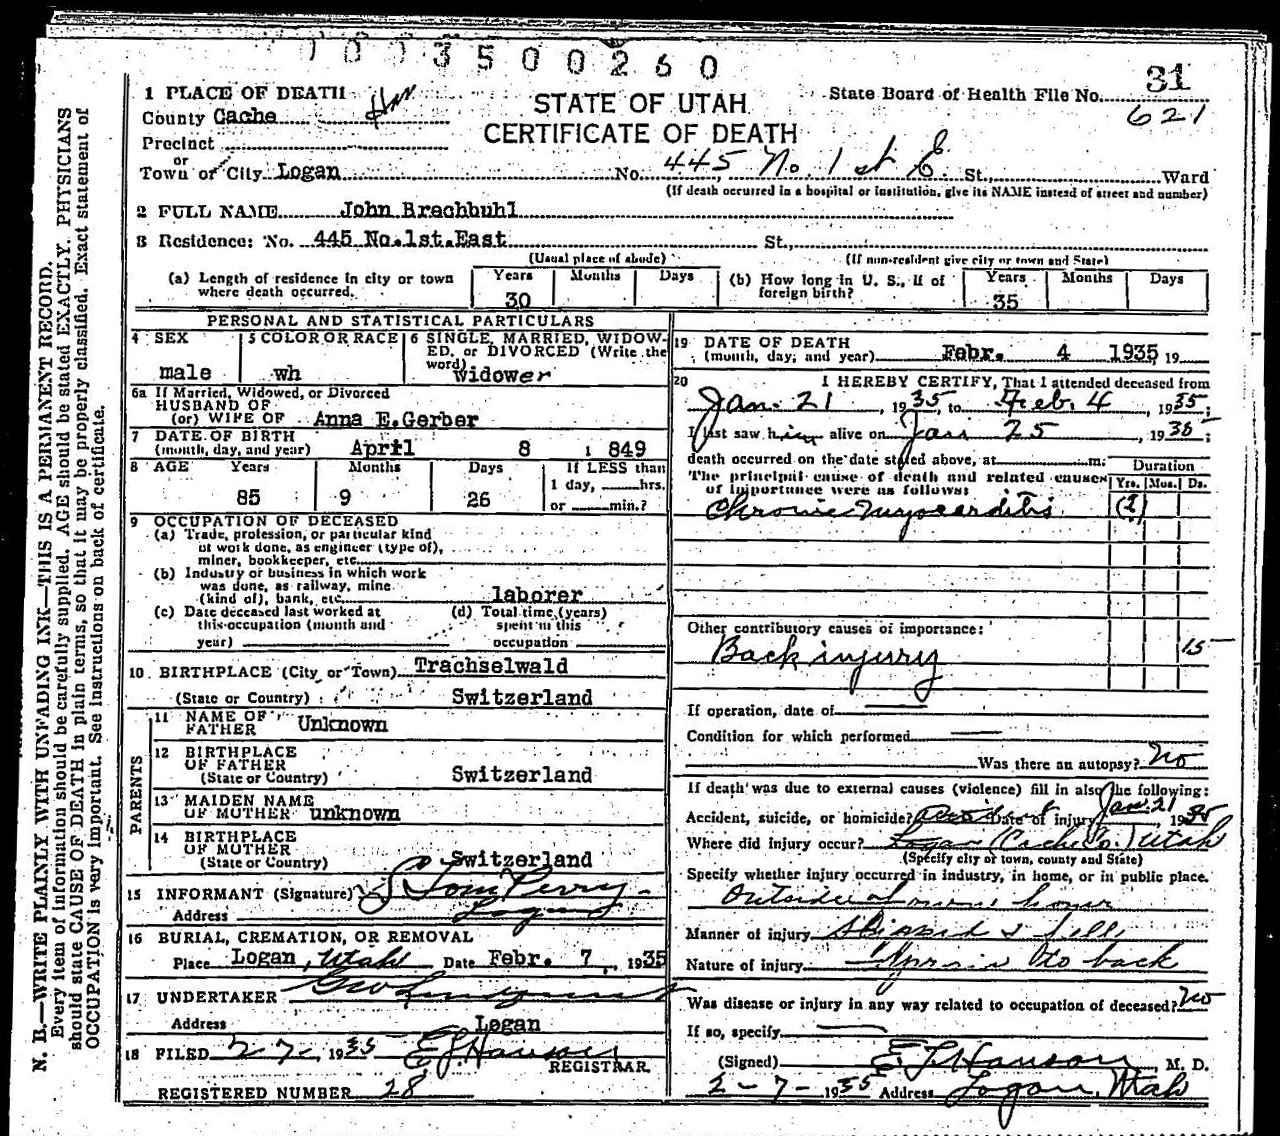 3500260
31
1 PLACE OF DEATH
State Board of Health File No.
County Cache
STATE OF UTAH
621
CERTIFICATE OF DEATH
Precinct
or
Town or City Logan No. 445 No. 1st E St., Ward
(If death occurred in a hospital or institution, give its NAME instead of street and number)
2 FULL NAME John Brechbuhl
3 Residence: No. 445 No.1st.East St.,
(Usual place of abode) (If non-resident give city or town and State)
(a) Length of residence in city or town where death occurred. Years 30 Months Days
(b) How long in U. S., if of foreign birth? Years 35 Months Days
PERSONAL AND STATISTICAL PARTICULARS
4 SEX male
5 COLOR OR RACE wh
6 SINGLE, MARRIED, WIDOW-
ED, or DIVORCED (Write the
word) Widower
6a If Married, Widowed, or Divorced
HUSBAND OF
(or) WIFE OF Anna E.Gerber
7 DATE OF BIRTH
(month, day, and year) April 8 1 849
8 AGE Years Months Days If LESS than
85 9 26 1 day, hrs.
or min.?
9 OCCUPATION OF DECEASED
(a) Trade, profession, or particular kind
of work done, as engineer (type of),
miner, bookkeeper, etc.
(b) Industry or business in which work
was done, as railway, mine
(kind of), bank, etc. laborer
(c) Date deceased last worked at
this occupation (month and
year)
(d) Total time (years)
spent in this
occupation
10 BIRTHPLACE (City or Town) Trachselwald
(State or Country) Switzerland
PARENTS
11 NAME OF
FATHER Unknown
12 BIRTHPLACE
OF FATHER
(State or Country) Switzerland
13 MAIDEN NAME
OF MOTHER unknown
14 BIRTHPLACE
OF MOTHER
(State or Country) Switzerland
15 INFORMANT (Signature) Tom Perry
Address Logan
16 BURIAL, CREMATION, OR REMOVAL
Place Logan, Utah Date Febr. 7, 1935
17 UNDERTAKER Geo Lindquist
Address Logan
18 FILED 2-7-, 1935 E.L.Hanson
REGISTRAR
REGISTERED NUMBER 28
19 DATE OF DEATH
(month, day, and year) Febr. 4 1935 19
20 I HEREBY CERTIFY, That I attended deceased from
Jan. 21, 1935, to Feb. 4, 1935;
I last saw him alive on Jan 25, 1935;
death occurred on the date stated above, at m.
The principal cause of death and related causes
of importance were as follows:
Duration
Yrs. Mos. Ds.
Chronic Myocarditis (2)
Other contributory causes of importance:
Back injury 15
If operation, date of
Condition for which performed
Was there an autopsy? No
If death was due to external causes (violence) fill in also the following:
Accident, suicide, or homicide? Accident Date of injury Jan. 21 1935
Where did injury occur? Logan (Cache Co.) Utah
(Specify city or town, county and State)
Specify whether injury occurred in industry, in home, or in public place.
Outside of own home
Manner of injury Slipped & fell
Nature of injury Sprain to back
Was disease or injury in any way related to occupation of deceased? No
If so, specify
(Signed) E L Hanson M. D.
2-7-1935 Address Logan, Utah
N. B.—WRITE PLAINLY WITH UNFADING INK—THIS IS A PERMANENT RECORD.
Every item of information should be carefully supplied. AGE should be stated EXACTLY. PHYSICIANS
should state CAUSE OF DEATH in plain terms, so that it may be properly classified. Exact statement of
OCCUPATION is very important. See instructions on back of certificate.